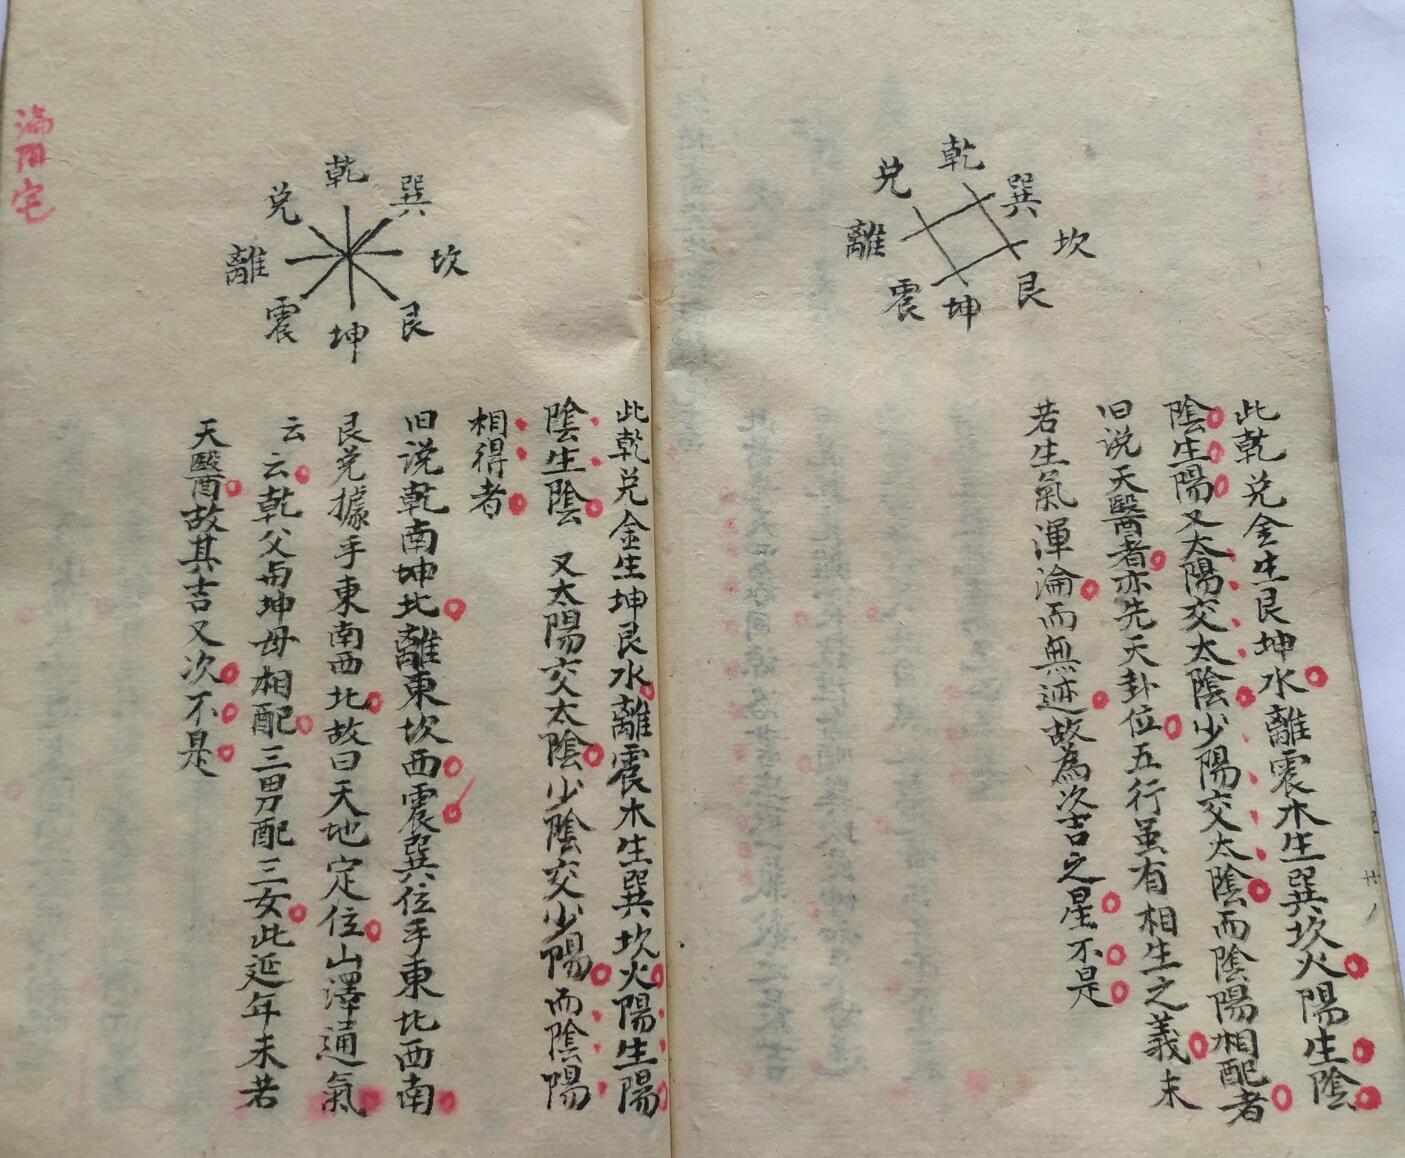 乾
兑
巽
離
坎
震
坤
艮
此乾兑金生艮坤水離震木生巽坎火陽生陰
陰生陽又太陽交太陰少陽交太陰而陰陽相配者
旧说天醫者亦先天卦位五行虽有相生之義未
若生氣渾淪而無迹故為次吉之星不是
乾
兑
巽
離
坎
震
坤
艮
此乾兑金生坤艮水離震木生巽坎火陽生陽
陰生陰 又太陽交太陰少陰交少陽而陰陽
相得者
旧说乾南坤北離東坎西震巽位手東北西南
艮兑據手東南西北故曰天地定位山澤通氣
云云乾父与坤母相配三男配三女此延年未若
天醫故其吉又次不是
陽宅